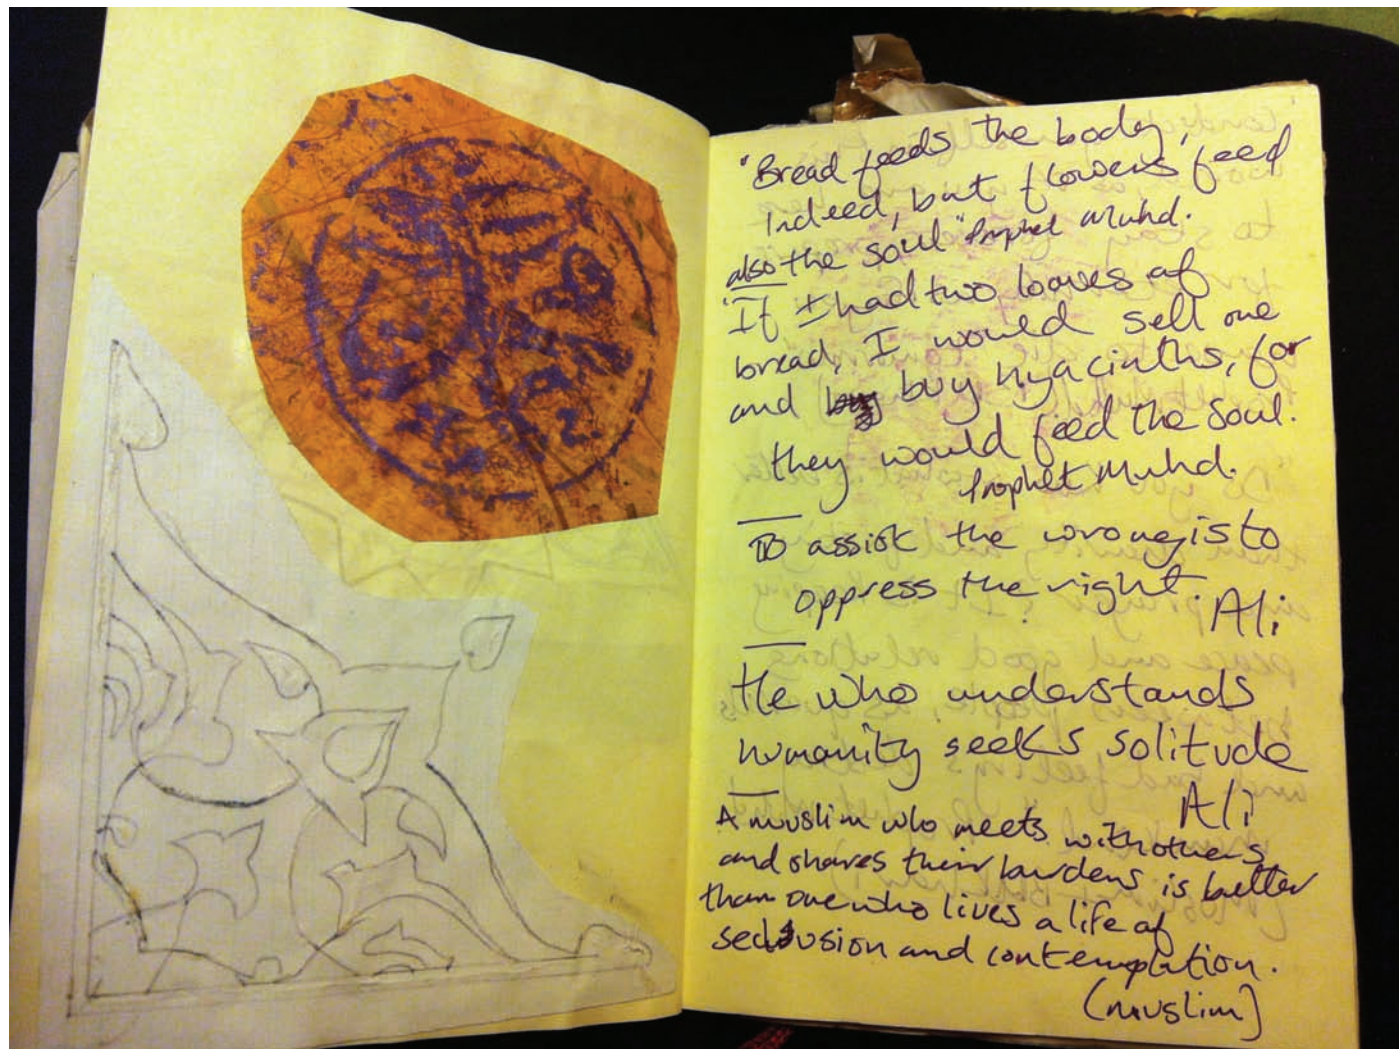 "Bread feeds the body,
Indeed, but flowers feed
also the soul" Prophet Muhd.
"If I had two loaves of
bread, I would sell one
and buy hyacinths, for
they would feed the soul.
Prophet Muhd.
To assist the wrong is to
oppress the right.
Ali
He who understands
humanity seeks solitude
Ali
A muslim who meets with others
and shares their burdens is better
than one who lives a life of
seclusion and contemplation.
(muslim)